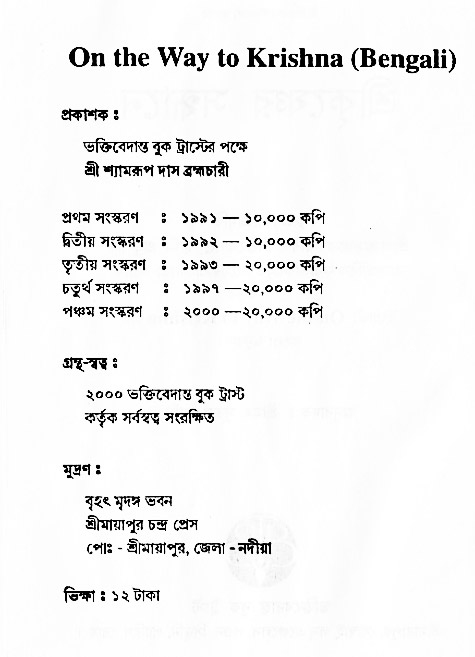 On the Way to Krishna (Bengali)
প্রকাশক :
ভক্তিবেদান্ত বুক ট্রাস্টের পক্ষে
শ্রী শ্যামরূপ দাস ব্রহ্মচারী
প্রথম সংস্করণ : ১৯৯১ — ১০,০০০ কপি
দ্বিতীয় সংস্করণ : ১৯৯২ — ১০,০০০ কপি
তৃতীয় সংস্করণ : ১৯৯৩ — ২০,০০০ কপি
চতুর্থ সংস্করণ : ১৯৯৭ —২০,০০০ কপি
পঞ্চম সংস্করণ : ২০০০ —২০,০০০ কপি
গ্রন্থ-স্বত্ব :
২০০০ ভক্তিবেদান্ত বুক ট্রাস্ট
কর্তৃক সর্বস্বত্ব সংরক্ষিত
মুদ্রণ :
বৃহৎ মৃদঙ্গ ভবন
শ্রীমায়াপুর চন্দ্র প্রেস
পোঃ - শ্রীমায়াপুর, জেলা - নদীয়া
ভিক্ষা : ১২ টাকা